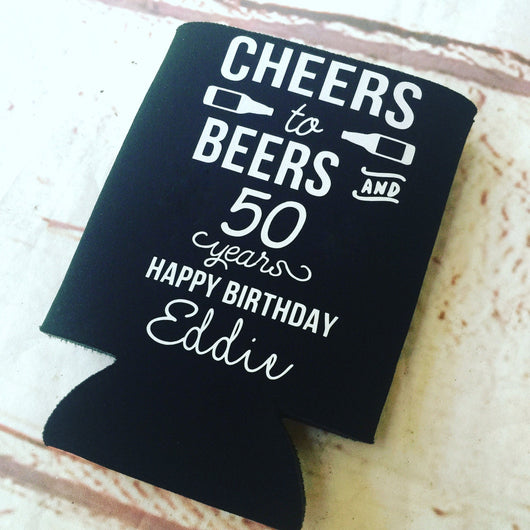 CHEERS
to
BEERS AND
50
years
HAPPY BIRTHDAY
Eddie